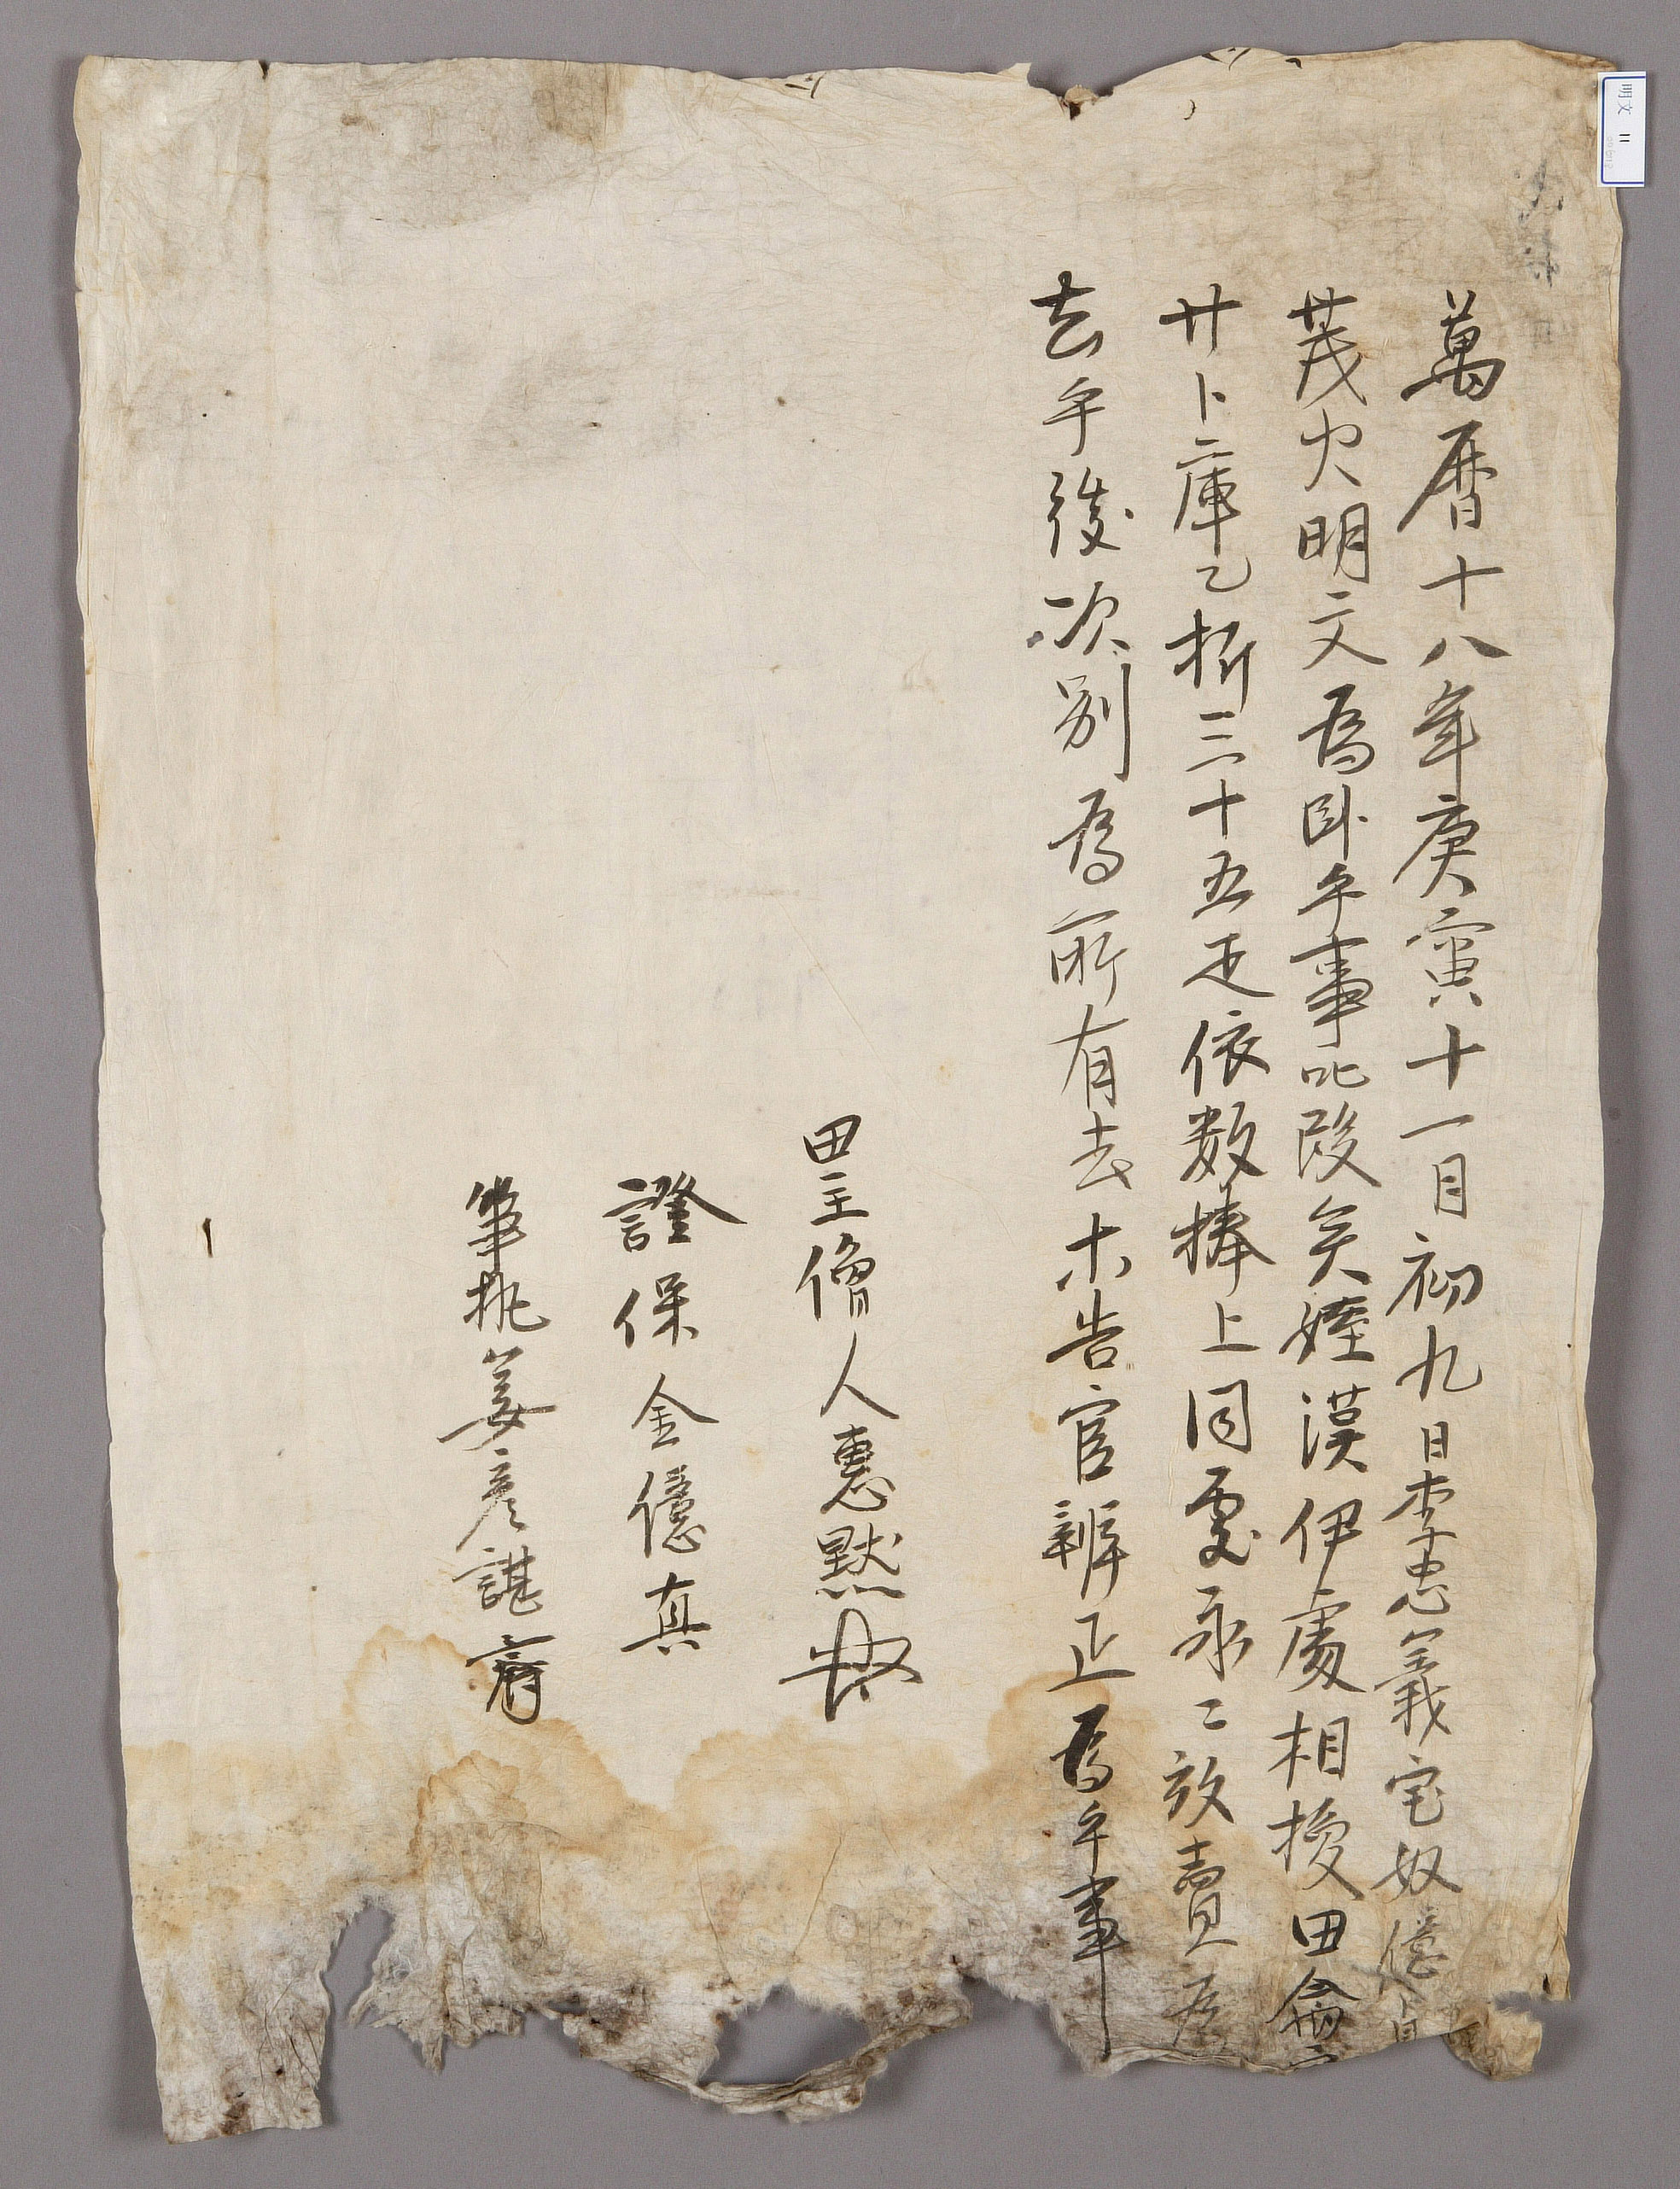 萬曆十八年庚寅十一月初九日李忠義宅奴億
茂火明文爲臥乎事叱段矣姪漢伊處相換田侖
廿卜庫乙折三十五疋依數捧上同處永〻放賣爲
去乎後次別爲所有去木告官辨正爲乎事
田主僧人惠默
證保金億真
筆執姜彦諶
明文 11